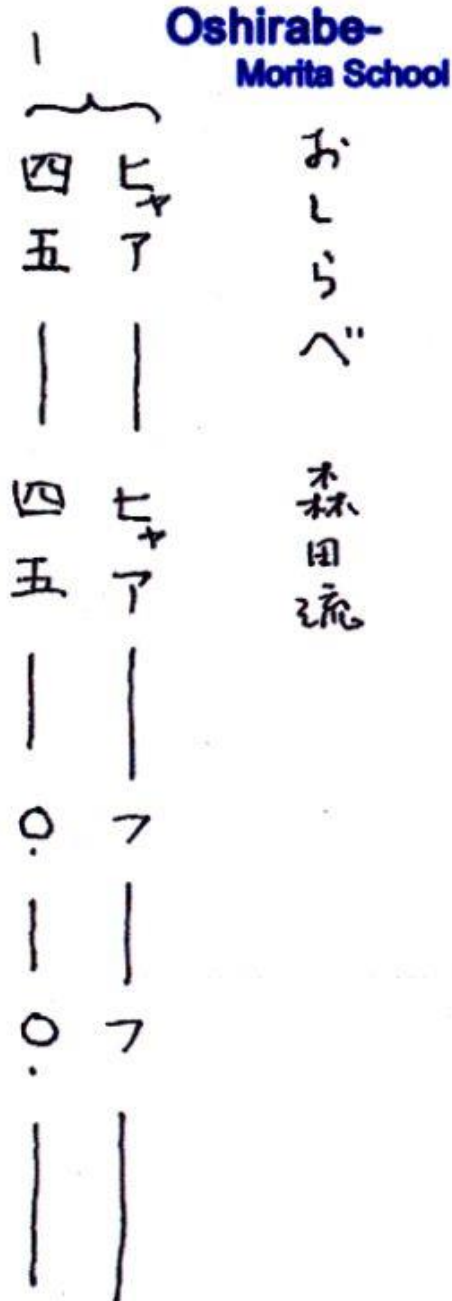 Oshirabe-
Morita School
おしらべ 森田流
一
ヒャア｜ヒャア｜フ｜フ｜
四五｜四五｜〇.｜〇.｜